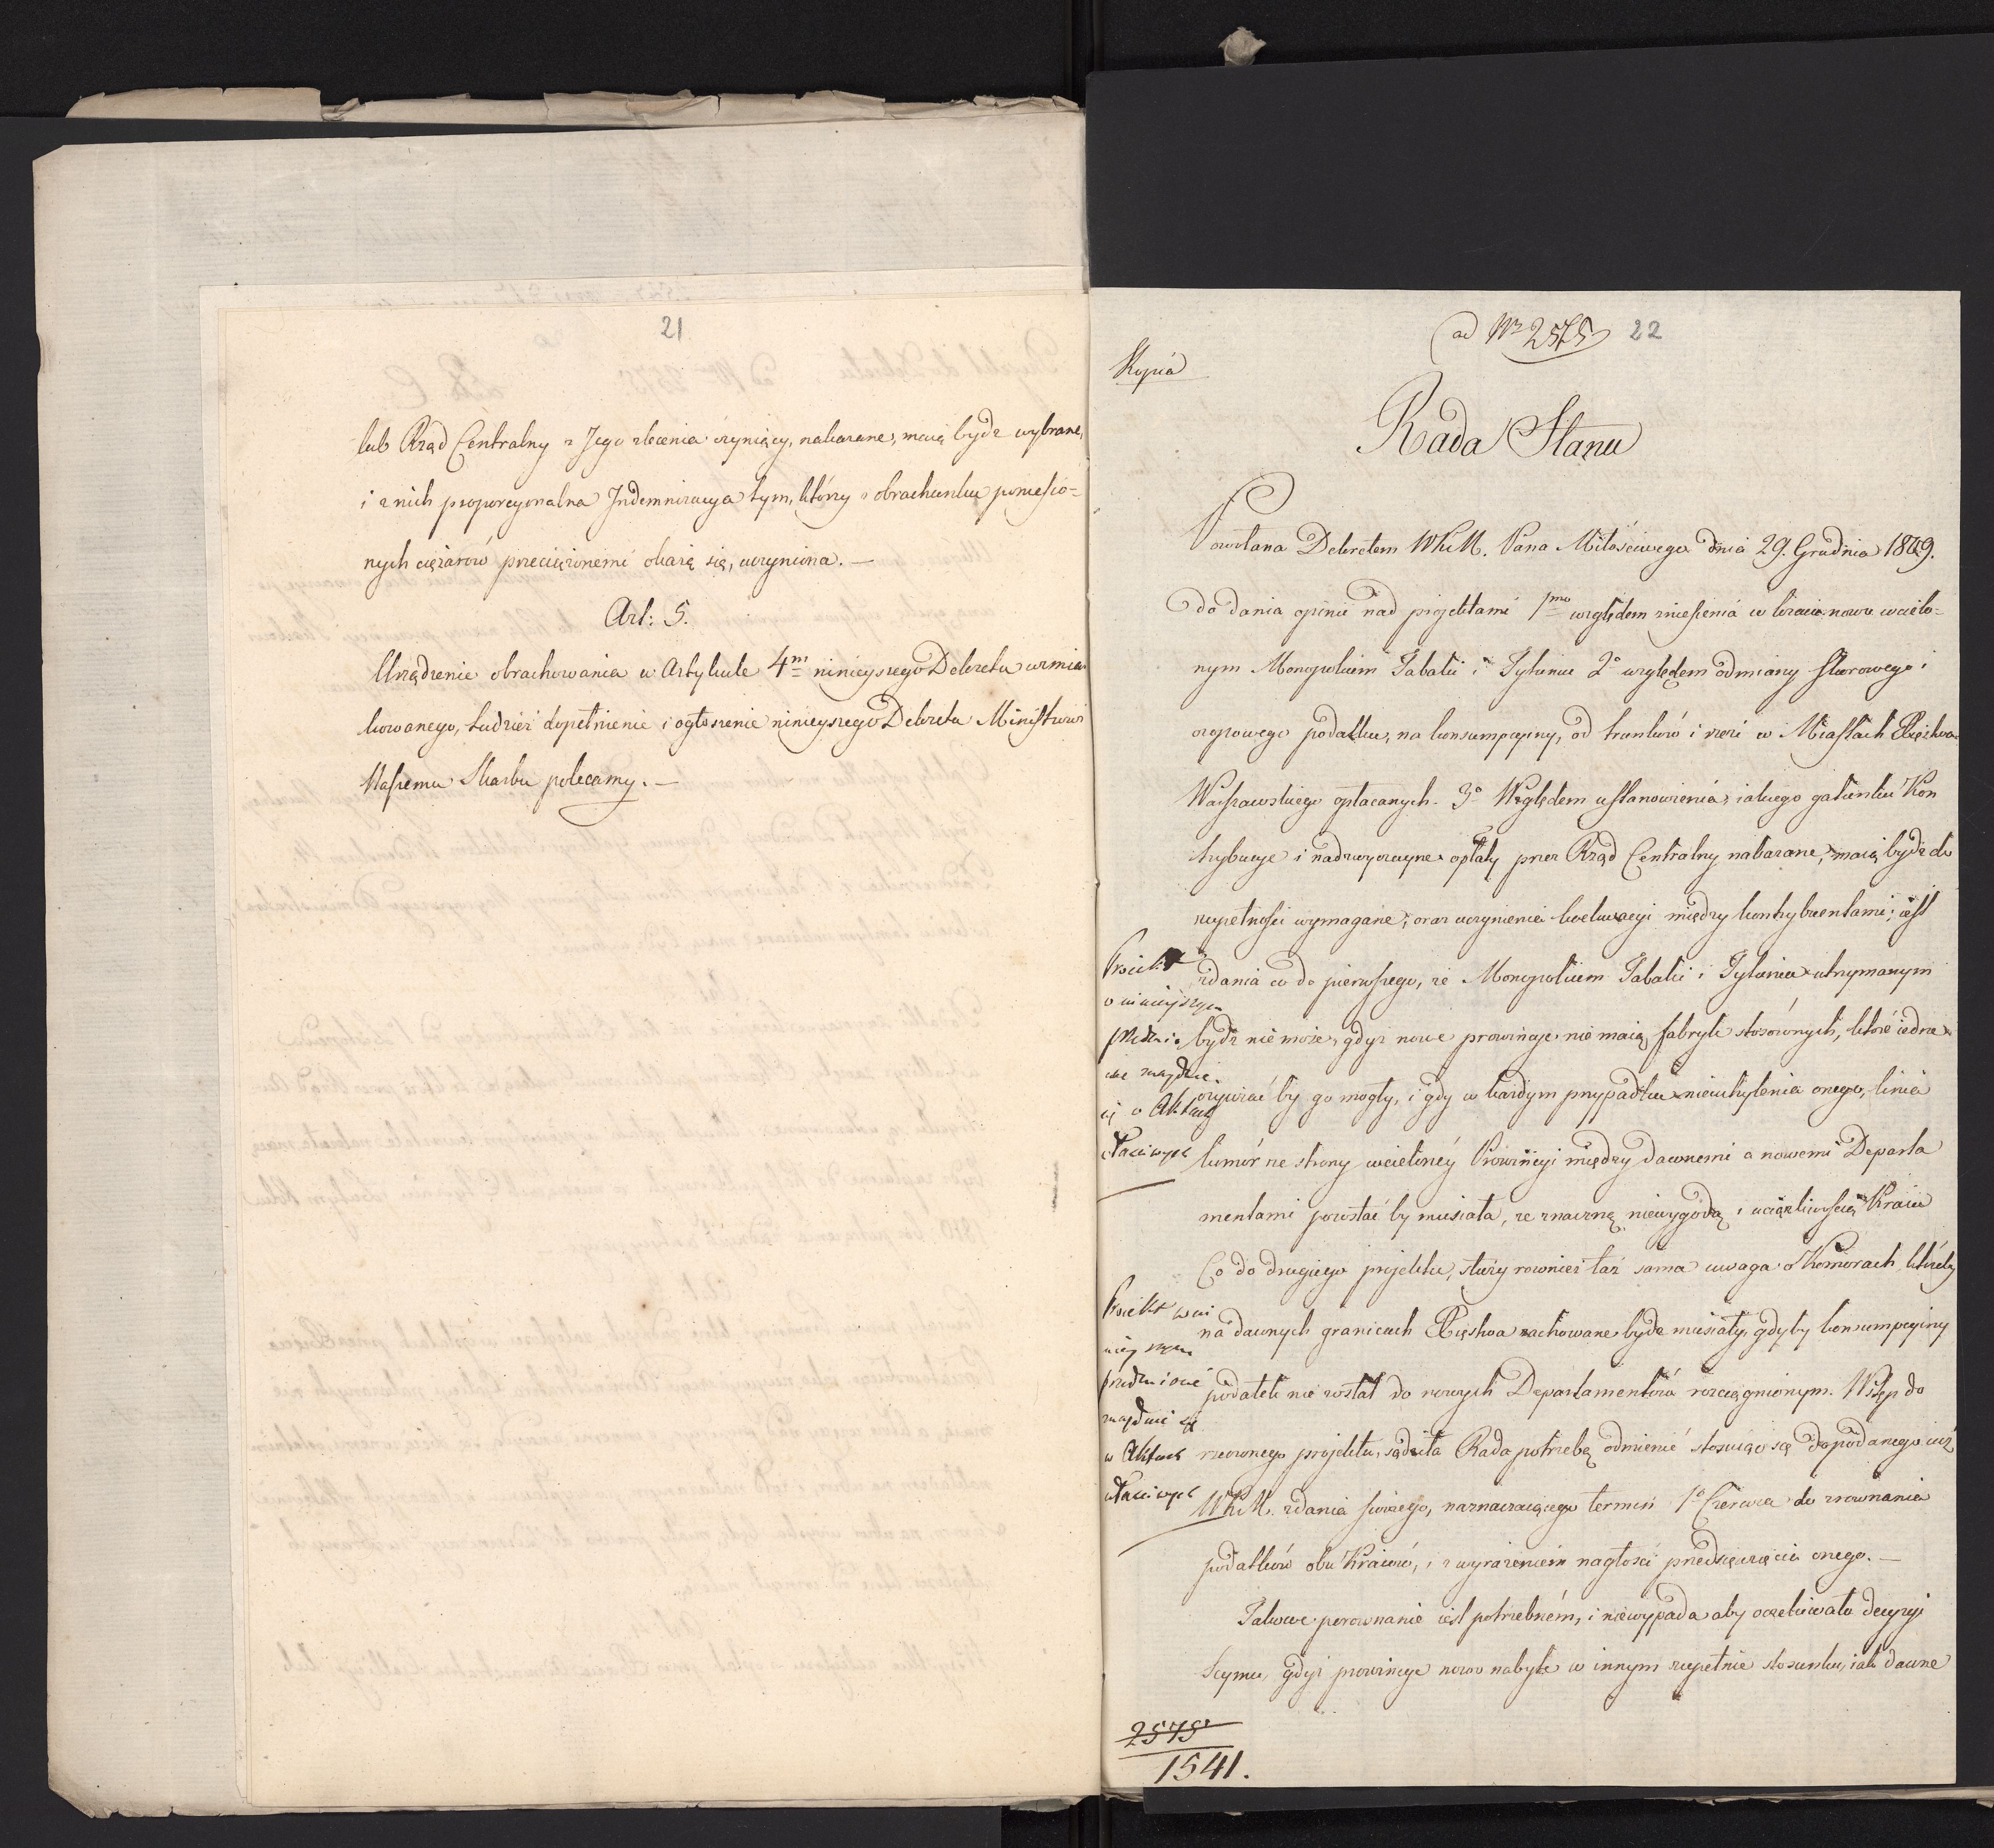 21
lub Rząd Centralny z Jego zlecenia czyniący, nakazane, maią bydź wybrane,
i z nich proporcyonalna Indemnizacya tym, którzy z obrachunku poniesio=
nych ciężarów przeciążonemi okażą się, uczyniona. —
Art: 5.
Urządzenie obrachowania w Artykule 4m ninieyszego Dekretu wzmian
kowanego, tudzież dopełnienie i ogłoszenie ninieyszego Dekretu Ministrowi
Naszemu Skarbu polecamy. —
ad Nr 2575 22
Kopia
Rada Stanu
Powołana Dekretem WKM. Pana Miłościwego dnia 29. Grudnia 1809.
do dania opinii nad projektami 1mo względem zniesienia w kraiu nowo wcielo=
nym Monopolium Tabaki i Tytuniu 2o względem odmiany skorowego i
czopowego podatku, na konsumpcyiny, od trunków i rzezi w Miastach Xięstwa
Warszawskiego opłacanych. 3o Względem ustanowienia, iakiego gatunku Kon
trybucye i nadzwyczayne opłaty przez Rząd Centralny nakazane, maią bydź do
zupełności wymagane; oraz uczynienia koekwacyi między kontrybuentami; iest
zdania co do pierwszego, że Monopolium Tabaki i Tytuniu utrzymanym
bydź nie może, gdyż nowe prowincye nie maią fabryk stosownych, które iedne
ożywiać by go mogły, i gdy w każdym przypadku nieuchylenia onego, linia
komór ze strony wcieloney Prowincyi między dawnemi a nowemi Departa
mentami pozostać by musiała, ze znaczną niewygodą i uciążliwością Kraiu
Co do drugiego projektu, służy rownież taż sama uwaga o Komorach, któreby
na dawnych granicach Xięstwa zachowane bydź musiały, gdyby konsumpcyiny
podatek nie został do nowych Departamentów rozciągnionym. Wstęp do
rzeczonego projektu, sądziła Rada potrzebą odmienić stosuiąc się do podanego iuż
WKM. zdania swoiego, naznaczaiącego termin 1o Czerwca do zrownania
podatków obu Kraiów, i z wyrażeniem nagłości przedsięwzięcia onego. —
Takowe porownanie iest potrzebném, i niewypada aby oczekiwało decyzyi
Seymu, gdyż prowincye nowo nabyte w innym zupełnie stosunku, iak dawne
Proiekt
o ninieyszym
przedmio
cie znaydzie
się w Aktach
właściwych
Proiekt w ni
nieyszym
przedmiocie
znaydzie się
w Aktach
właściwych
2575
1541.